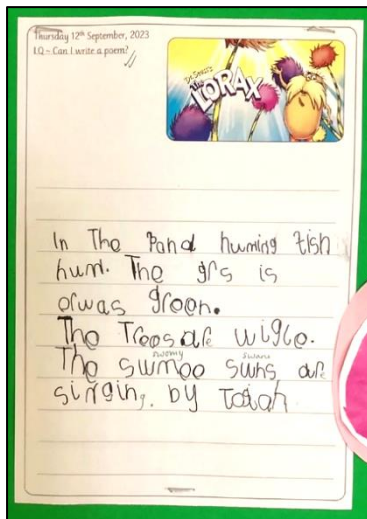 Thursday 12th September, 2023
I.Q - Can I write a poem?
Dr. Seuss's
The
LORAX
In The Pand huming fish
hum. The grs is
orwas green.
The Trees are wigle.
swomy swans
The swmee swns are
singing. by